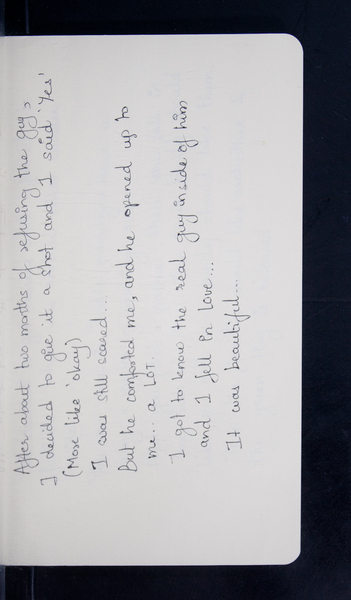 After about two months of refusing the guy,
I decided to give it a shot and I said 'Yes'
(More like 'okay')
I was still scared...
But he comforted me, and he opened up to
me... a LOT.
I got to know the real guy inside of him
and I fell in love...
It was beautiful...